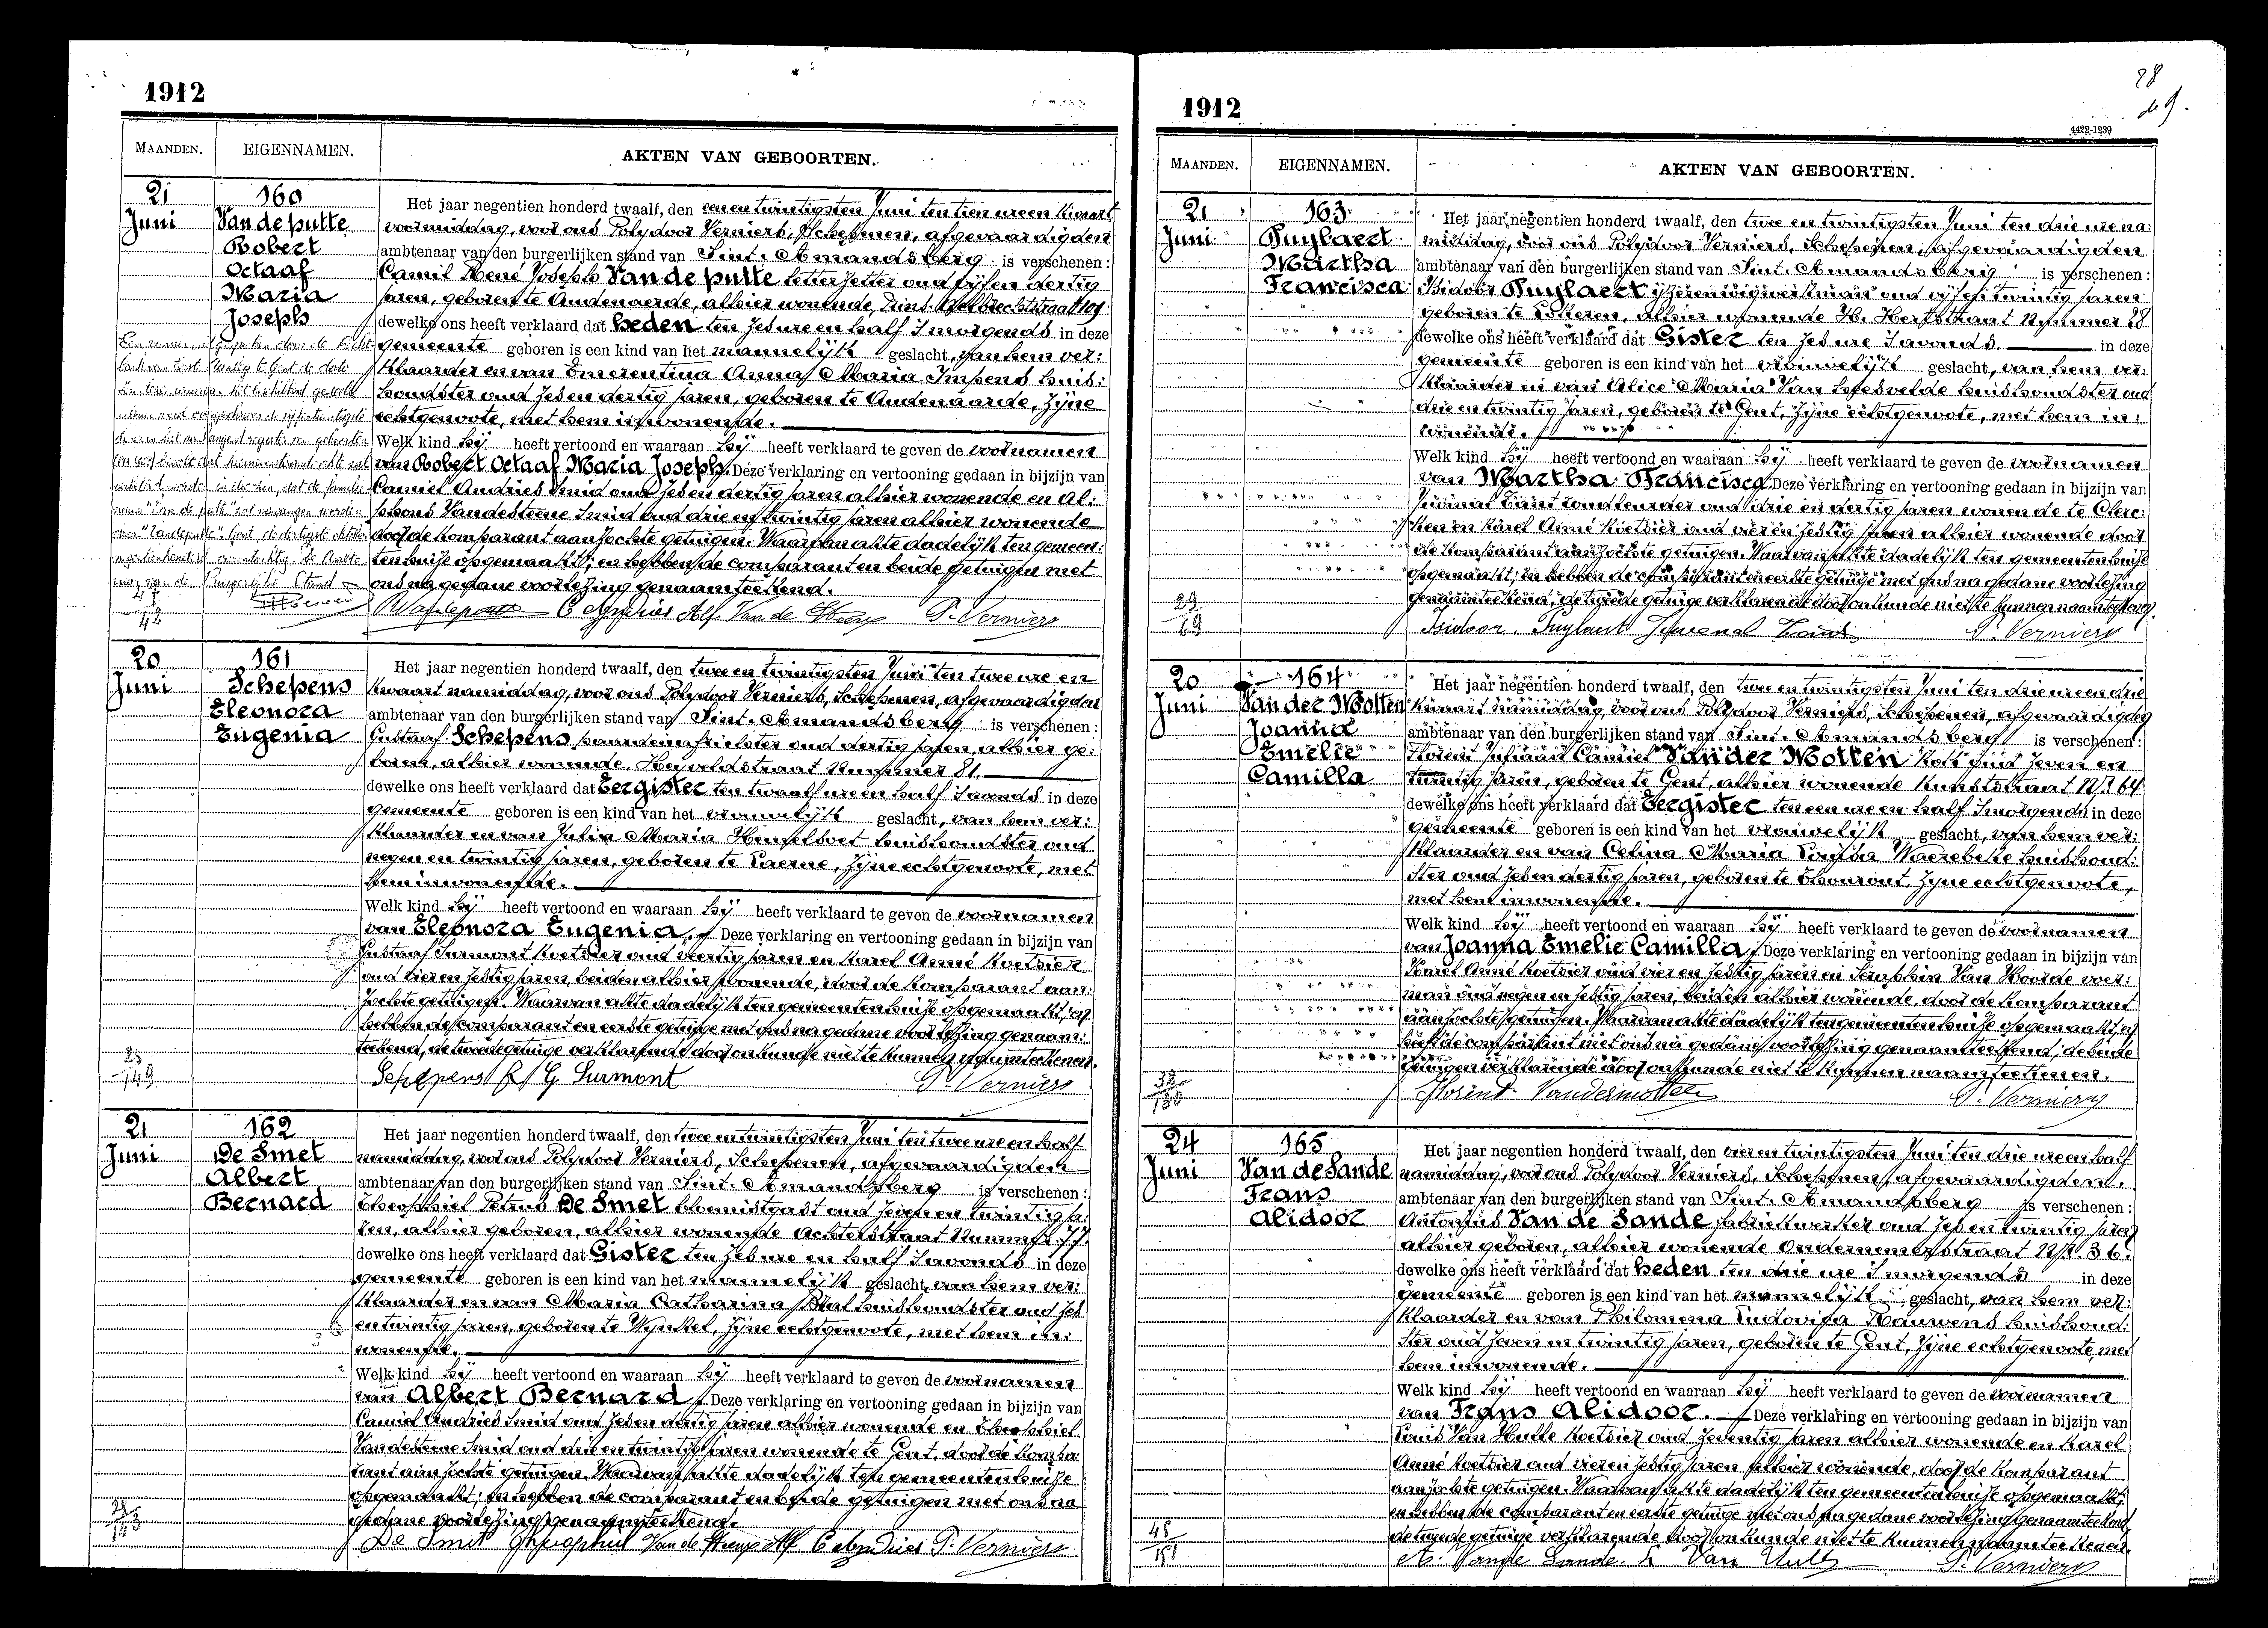 1912
MAANDEN. EIGENNAMEN. AKTEN VAN GEBOORTEN.
21 Juni
160
Van de putte
Robert
Octaaf
Maria
Joseph
Het jaar negentien honderd twaalf, den een en twintigsten Juni ten tien ure en kwaart
voormiddag, voor ons Polydoor Verniers, Schepenen, afgevaardigden
ambtenaar van den burgerlijken stand van Sint-Amandsberg is verschenen:
Camil René Joseph Van de putte letterzetter oud vijf en dertig
jaren, geboren te Audenaerde, alhier wonende,
dewelke ons heeft verklaard dat heden ten zes ure en half 's morgends in deze
gemeente geboren is een kind van het mannelijk geslacht, van hem ver:
klaarder en van Emerentina Anna Maria Impens huis:
houdster oud zes en dertig jaren, geboren te Audenaarde, zijne
echtgenoote, met hem inwonende.
Welk kind hij heeft vertoond en waaraan hij heeft verklaard te geven de voornamen
van Robert Octaaf Maria Joseph. Deze verklaring en vertooning gedaan in bijzijn van
Camiel Andries smid oud zes en dertig jaren alhier wonende en Al:
phons Vandesteene smid oud drie en twintig jaren alhier wonende
door de komparant aanzochte getuigen. Waarvan akte dadelijk ten gemeen:
tenhuize opgemaakt; en hebben de comparant en beide getuigen met
ons na gedane voorlezing genaamteekend.
C Andries Alf Van de Steene P. Verniers
47
42
20 Juni
161
Schepens
Eleonora
Eugenia
Het jaar negentien honderd twaalf, den twee en twintigsten Juni ten twee ure en
kwaart namiddag, voor ons Polydoor Verniers, Schepenen, afgevaardigden
ambtenaar van den burgerlijken stand van Sint-Amandsberg is verschenen:
Gustaaf Schepens oud dertig jaren, alhier ge:
boren, alhier wonende, Heyveldstraat Nummer 81
dewelke ons heeft verklaard dat Eergister ten twaalf ure en half 's avonds in deze
gemeente geboren is een kind van het vrouwelijk geslacht, van hem ver:
klaarder en van Julia Maria Hemelsoet huishoudster oud
negen en twintig jaren, geboren te Laerne, zijne echtgenoote, met
hem inwonende.
Welk kind hij heeft vertoond en waaraan hij heeft verklaard te geven de voornamen
van Eleonora Eugenia. Deze verklaring en vertooning gedaan in bijzijn van
Gustaaf Surmont koetsier oud veertig jaren en Karel Anné koetsier
oud vier en zestig jaren, beiden alhier wonende, door de komparant aan:
zochte getuigen. Waarvan akte dadelijk ten gemeentenhuize opgemaakt; en
hebben de comparant en eerste getuige met ons na gedane voorlezing genaam:
teekend, de tweede getuige verklarende door onkunde niet te kunnen naamteekenen.
Schepens G. G Surmont P. Verniers
149
21 Juni
162
De Smet
Albert
Bernard
Het jaar negentien honderd twaalf, den twee en twintigsten Juni ten twee ure en half
namiddag, voor ons Polydoor Verniers, Schepenen, afgevaardigden
ambtenaar van den burgerlijken stand van Sint-Amandsberg is verschenen:
Theophiel Petrus De Smet bloemistgast oud zeven en twintig ja:
ren, alhier geboren, alhier wonende Achterstraat Nummer 77
dewelke ons heeft verklaard dat Gister ten zes ure en half 's avonds in deze
gemeente geboren is een kind van het mannelijk geslacht, van hem ver:
klaarder en van Maria Catharina huishoudster oud zes
en twintig jaren, geboren te Wynkel, zijne echtgenoote, met hem in:
wonende.
Welk kind hij heeft vertoond en waaraan hij heeft verklaard te geven de voornamen
van Albert Bernard. Deze verklaring en vertooning gedaan in bijzijn van
Camiel Andries smid oud zes en dertig jaren alhier wonende en Theophiel
Vandesteene smid oud drie en twintig jaren wonende te Gent, door de kompa:
rant aanzochte getuigen. Waarvan akte dadelijk ten gemeentenhuize
opgemaakt; en hebben de comparant en beide getuigen met ons na
gedane voorlezing genaamteekend.
De Smet Theophiel Van de Steene Alf C Andries P. Verniers
143
1912
28
4422-1239
MAANDEN. EIGENNAMEN. AKTEN VAN GEBOORTEN.
21 Juni
163
Puylaert
Martha
Francisca
Het jaar negentien honderd twaalf, den twee en twintigsten Juni ten drie ure na:
middag, voor ons Polydoor Verniers, Schepenen, afgevaardigden
ambtenaar van den burgerlijken stand van Sint-Amandsberg is verschenen:
Isidoor Puylaert ijzerenwegwerkman oud vijf en twintig jaren
geboren te Lokeren, alhier wonende H. Hertstraat Nummer 28
dewelke ons heeft verklaard dat Gister ten zes ure 's avonds in deze
gemeente geboren is een kind van het vrouwelijk geslacht, van hem ver:
klaarder en van Alice Maria Van Hesvelde huishoudster oud
drie en twintig jaren, geboren te Gent, zijne echtgenoote, met hem in:
wonende.
Welk kind hij heeft vertoond en waaraan hij heeft verklaard te geven de voornamen
van Martha Francisca. Deze verklaring en vertooning gedaan in bijzijn van
Juvenal oud drie en dertig jaren wonende te Clerc:
ken en Karel Anné koetsier oud vier en zestig jaren alhier wonende door
de komparant aanzochte getuigen. Waarvan akte dadelijk ten gemeentenhuize
opgemaakt; en hebben de comparant en eerste getuige met ons na gedane voorlezing
genaamteekend, de tweede getuige verklarende door onkunde niet te kunnen naamteekenen.
Isidoor Puylaert Juvenal P. Verniers
29
69
20 Juni
164
Van der Motten
Joanna
Emelie
Camilla
Het jaar negentien honderd twaalf, den twee en twintigsten Juni ten drie ure en drie
kwaart namiddag, voor ons Polydoor Verniers, Schepenen, afgevaardigden
ambtenaar van den burgerlijken stand van Sint-Amandsberg is verschenen:
Florent Julien Camiel Van der Motten kok oud zeven en
twintig jaren, geboren te Gent, alhier wonende Kunststraat Nr 64
dewelke ons heeft verklaard dat Eergister ten een ure en half 's morgends in deze
gemeente geboren is een kind van het vrouwelijk geslacht, van hem ver:
klaarder en van Celina Maria Louisa Waerebeke huishoud:
ster oud zes en dertig jaren, geboren te Thourout, zijne echtgenoote,
met hem inwonende.
Welk kind hij heeft vertoond en waaraan hij heeft verklaard te geven de voornamen
van Joanna Emelie Camilla. Deze verklaring en vertooning gedaan in bijzijn van
Karel Anné koetsier oud vier en zestig jaren en Seraphin Van Hoorde voer:
man oud negen en zestig jaren, beiden alhier wonende, door de komparant
aanzochte getuigen. Waarvan akte dadelijk ten gemeentenhuize opgemaakt; en
heeft de comparant met ons na gedane voorlezing genaamteekend; de beide
getuigen verklarende door onkunde niet te kunnen naamteekenen.
Florent Vandermotten P. Verniers
32
150
24 Juni
165
Van de Sande
Frans
Alidoor
Het jaar negentien honderd twaalf, den vier en twintigsten Juni ten drie ure en half
namiddag, voor ons Polydoor Verniers, Schepenen, afgevaardigden
ambtenaar van den burgerlijken stand van Sint-Amandsberg is verschenen:
Antonius Van de Sande fabriekwerker oud zes en twintig jaren
alhier geboren, alhier wonende Ondernemerstraat Nr. 36
dewelke ons heeft verklaard dat heden ten drie ure 's morgends in deze
gemeente geboren is een kind van het mannelijk geslacht, van hem ver:
klaarder en van Philomena Ludovica Rauwens huishoud:
ster oud zeven en twintig jaren, geboren te Gent, zijne echtgenoote, met
hem inwonende.
Welk kind hij heeft vertoond en waaraan hij heeft verklaard te geven de voornamen
van Frans Alidoor. Deze verklaring en vertooning gedaan in bijzijn van
Louis Van Hulle koetsier oud zeventig jaren alhier wonende en Karel
Anné koetsier oud vier en zestig jaren alhier wonende, door de komparant
aanzochte getuigen. Waarvan akte dadelijk ten gemeentenhuize opgemaakt;
en hebben de comparant en eerste getuige met ons na gedane voorlezing genaamteekend,
de tweede getuige verklarende door onkunde niet te kunnen naamteekenen.
A. Van de Sande. L Van Hulle P. Verniers
48
151